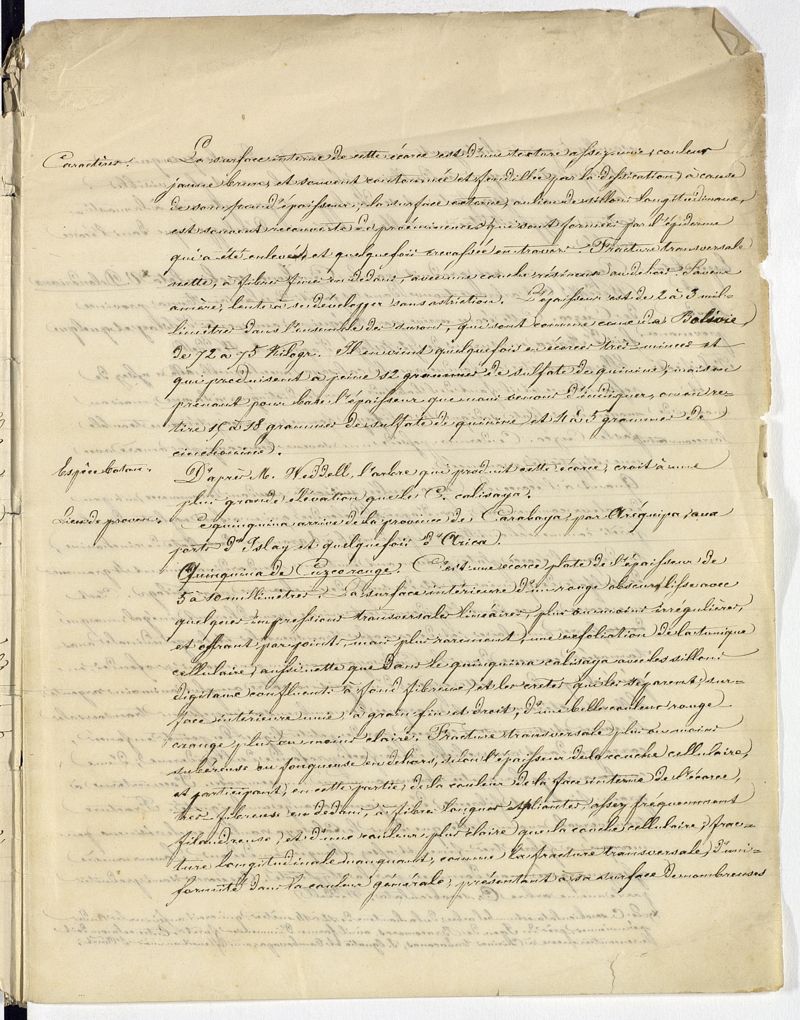 Caractères. La surface interne de cette écorce est d'une texture assez unie, couleur
jaune brun, et souvent contournée et fendillée par la dessication, à cause
de son grand d'épaisseur; la surface externe, au lieu de sillons longitudinaux,
est souvent recouverte de proéminences, qui sont formées par l'épiderme
qui a été enlevé, et quelquefois crevassée en travers. Fracture transversale
nette, à fibres fines en dedans, avec une couche résineuse au dehors. Saveur
amère, lente à se développer sans astriction. L'épaisseur est de 2 à 3 mil-
limètre dans l'ensemble des surons, qui sont comme ceux de Bolivie,
de 72 à 75 Kilogr. Il en vient quelquefois en écorces très minces et
qui produisent à peine 12 grammes de sulfate de quinine; mais en
prenant pour base l'épaisseur que nous venons d'indiquer, on en re-
tire 16 à 18 grammes de sulfate de quinine et 4 à 5 grammes de
cinchonine.
Espèce botan. D'après M. Weddell, l'arbre qui produit cette écorce, croît à une
plus grande élévation que le C. calisaya.
Lieu de proven. Ce quinquina arrive de la province de Carabaya, par Aréquipa, aux
ports d'Islay et quelquefois d'Arica.
Quinquina de Cuzco rouge. C'est une écorce plate de l'épaisseur de
5 à 10 millimètres. La surface intérieure d'un rouge obscur, lisse avec
quelques impressions transversales linéaires, plus ou moins irrégulières,
et offrant par points, mais plus rarement, une exfoliation de la tunique
cellulaire, aussi nette que dans le quinquina calisaya avec les sillons
digitaux confluents à fond fibreux, et les cretes qui les séparent; sur-
face intérieure unie, à grain fin et droit, d'une belle couleur rouge
orange, plus ou moins claire. Fracture transversale, plus ou moins
subéreuse ou fongueuse en dehors, selon l'épaisseur de la couche cellulaire,
et participant, en cette partie, de la couleur de la face interne de l'écorce,
très fibreuse en dedans, à fibres longues et pliantes, assez fréquemment
filandreuse, et d'une couleur plus claire que la couche cellulaire, frac-
ture longitudinale manquant, comme la fracture transversale, d'uni-
formité dans la couleur générale, présentant à sa surface de nombreuses